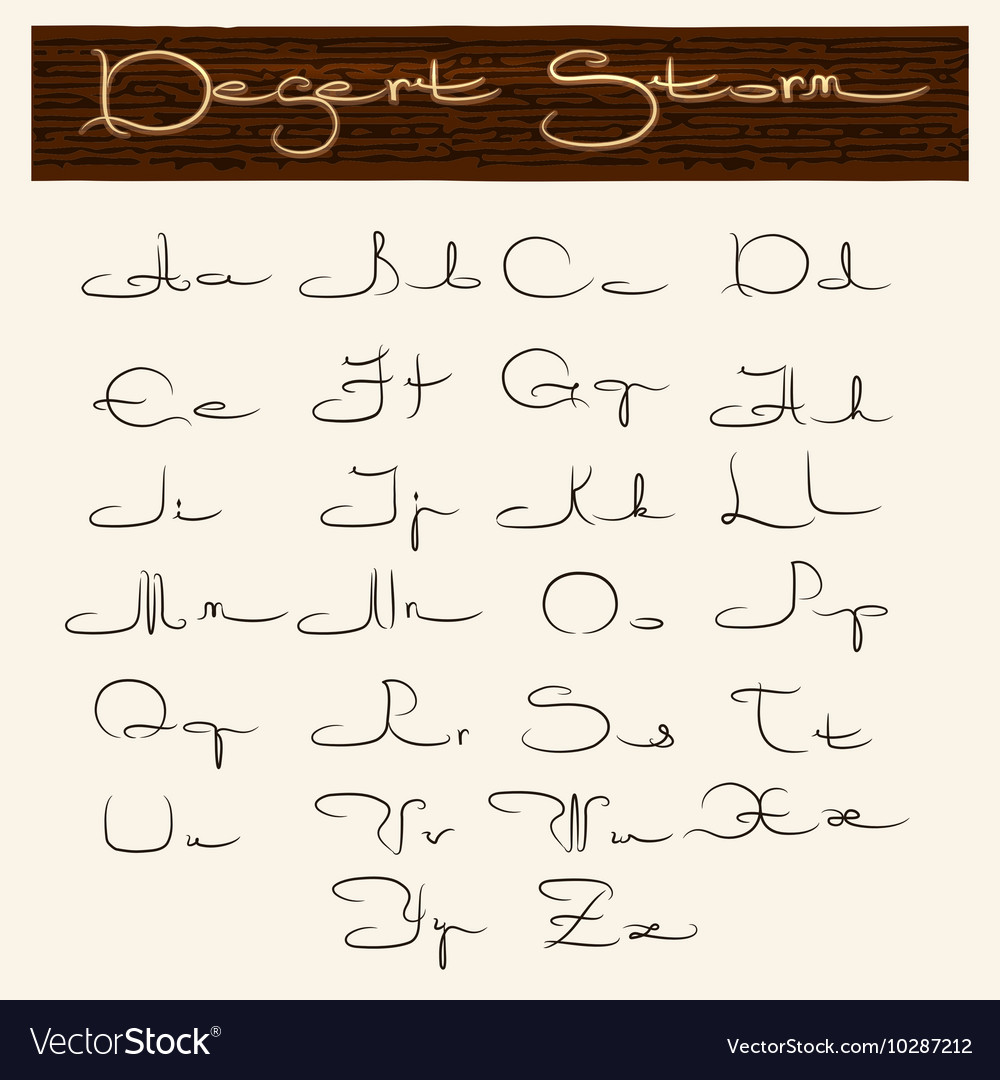 Desert Storm
Aa Bb Cc Dd
Ee Ff Gg Hh
Ii Jj Kk Ll
Mm Nn Oo Pp
Qq Rr Ss Tt
Uu Vv Ww Xx
Yy Zz
VectorStock® VectorStock.com/10287212